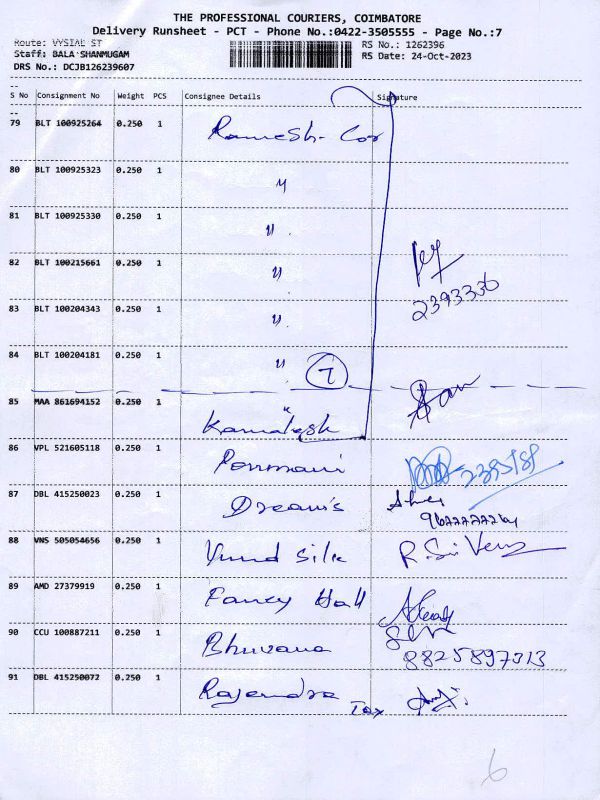 THE PROFESSIONAL COURIERS, COIMBATORE
Delivery Runsheet - PCT - Phone No.:0422-3505555 - Page No.:7
Route: VYSIAL ST
RS No.: 1262396
Staff: BALA SHANMUGAM
RS Date: 24-Oct-2023
DRS No.: DCJB126239607
--
S No Consignment No Weight PCS Consignee Details Signature
--
79 BLT 100925264 0.250 1 Ramesh- Cor
80 BLT 100925323 0.250 1 "
81 BLT 100925330 0.250 1 "
82 BLT 100215661 0.250 1 "
2393330
83 BLT 100204343 0.250 1 "
84 BLT 100204181 0.250 1 " 7
85 MAA 861694152 0.250 1 Kamalesh
86 VPL 521605118 0.250 1 Ponmani
87 DBL 415250023 0.250 1 Dreams
88 VNS 505054656 0.250 1 Vund Silk
89 AMD 27379919 0.250 1 Fancy Hall
90 CCU 100887211 0.250 1 Bhuvana 8825897313
91 DBL 415250072 0.250 1 Rajendra Tax
6